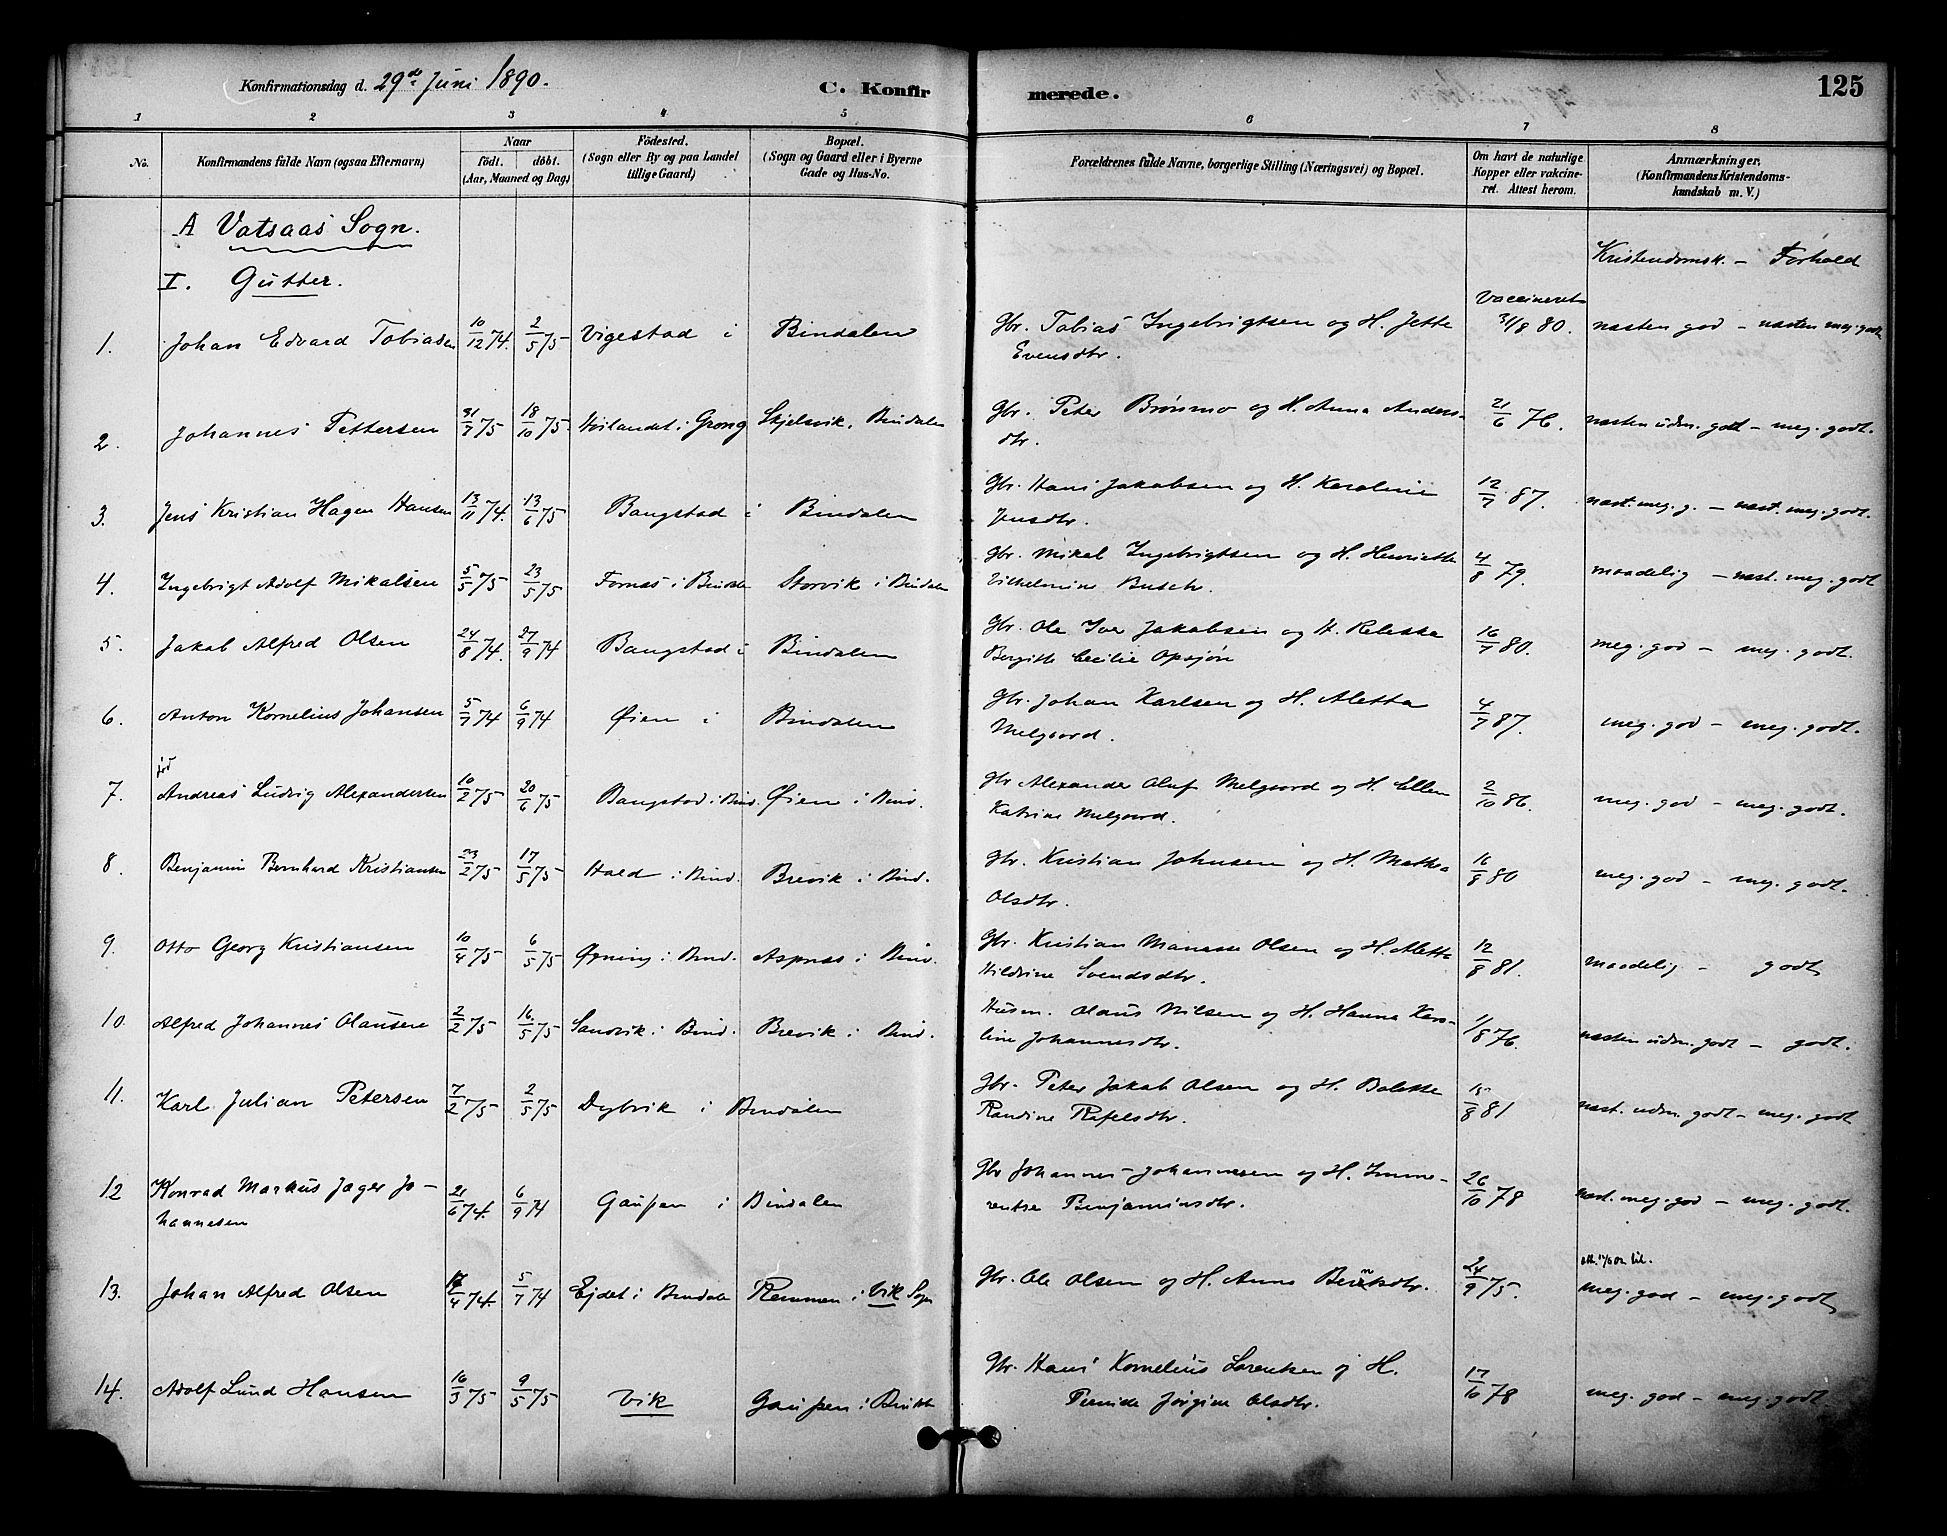 Konfirmationsdag d. 29de Juni 1890.
C. Konfirmerede.
125
1 2 3 4 5 6 7 8
No.
Konfirmandens fulde Navn (ogsaa Efternavn)
Naar
födt. döbt.
(Aar, Maaned og Dag)
Födested.
(Sogn eller By og paa Landet
tillige Gaard)
Bopæl.
(Sogn og Gaard eller i Byerne
Gade og Hus-No.
Forældrenes fulde Navne, borgerlige Stilling (Næringsvei) og Bopæl.
Om havt de naturlige
Kopper eller vakcine-
ret. Attest herom.
Anmærkninger.
(Konfirmandens Kristendoms-
kundskab m. V.)
A Vatsaas Sogn.
I. Gutter.
Kristendomsk. – Forhold
Vaccineret
1. Johan Edvard Tobiasen 10/12 74. 2/5 75 Vigestad i Bindalen Gbr. Tobias Ingebrigtsen og H. Jette 31/8 80. næsten god – næsten meg. godt
Evensdtr.
2. Johannes Pettersen 31/7 75 18/10 75. Høilandet i Grong Skjelsvik, Bindalen Gbr. Peter Brønmo og H. Anna Anders- 21/6 76. næsten udm. godt – meg. godt.
dtr.
3. Jens Kristian Hagen Hansen 13/11 74. 13/6 75 Bangstad i Bindalen Gbr. Hans Jakobsen og H. Karoline 12/7 87. næst. meg. g. – næst. meg. godt.
Jensdtr.
4. Ingebrigt Adolf Mikalsen 5/5 75 23/5 75 Fornæs i Bindalen Storvik i Bindalen Gbr. Mikal Ingebrigtsen og H. Henriette 4/8 79. maadelig – næst. meg. godt
Vilhelmine Busch.
5. Jakob Alfred Olsen 24/8 74. 27/9 74 Bangstad i Bindalen Gbr. Ole Iver Jakobsen og H. 16/7 80. meg. god – meg. godt.
Bergitte Cecilie Opsjøn
6. Anton Kornelius Johansen 5/7 74 6/9 74 Øien i Bindalen Gbr. Johan Karlsen og H. Aletta 4/7 87. meg. god – meg. godt.
Melgaard.
død
7. Andreas Ludvig Alexandersen 10/2 75 20/6 75 Bangstad i Bind. Øien i Bind. Gbr Alexander Oluf Melgaard og H. Ellen 2/10 86. meg. god – meg. godt.
Katrine Melgaard.
8. Benjamin Bernhard Kristiansen 23/2 75 17/5 75 Hald i Bind. Brevik i Bind. Gbr. Kristian Johnsen og H. Mathea 16/8 80 meg. god – meg. godt.
Olsdtr.
9. Otto Georg Kristiansen 10/4 75 6/5 75 Øgning i Bind. Aspnæs i Bind. Gbr. Kristian Manasse Olsen og H. Aletta 12/8 81. maadelig – godt
Hildrine Svendsdtr.
10. Alfred Johannes Olausen 2/2 75 16/5 75 Sandvik i Bind. Brevik i Bind. Husm. Olaus Nilsen og H. Hanna Karo- 1/8 76. næsten udm. godt – godt.
line Johannesdtr.
11. Karl Julian Petersen 7/2 75 2/5 75 Dybvik i Bindalen Gbr. Peter Jakob Olsen og H. Bolette 15/8 81 næst. udm. godt – meg. godt
Randine Rafelsdtr.
12 Konrad Markus Jager Jo- 21/6 74. 6/9 74 Gaupen i Bindalen Gbr Johannes Johannesen og H. Imme- 26/10 78 næst. meg. god – meg. godt.
hannesen
rentse Benjaminsdtr.
13. Johan Alfred Olsen /4 74. 5/7 74 Ejdet i Bindalen Remmen i Vik Sogn Gbr. Ole Olsen og H. Anna 24/9 75. meg. god – meg. godt
14. Adolf Lund Hansen 16/3 75 9/5 75 Vik Gaupen i Gbr. Hans Kornelius Lorentsen og H. 17/10 78 meg. god – meg. godt.
Jørgine Olsdtr.